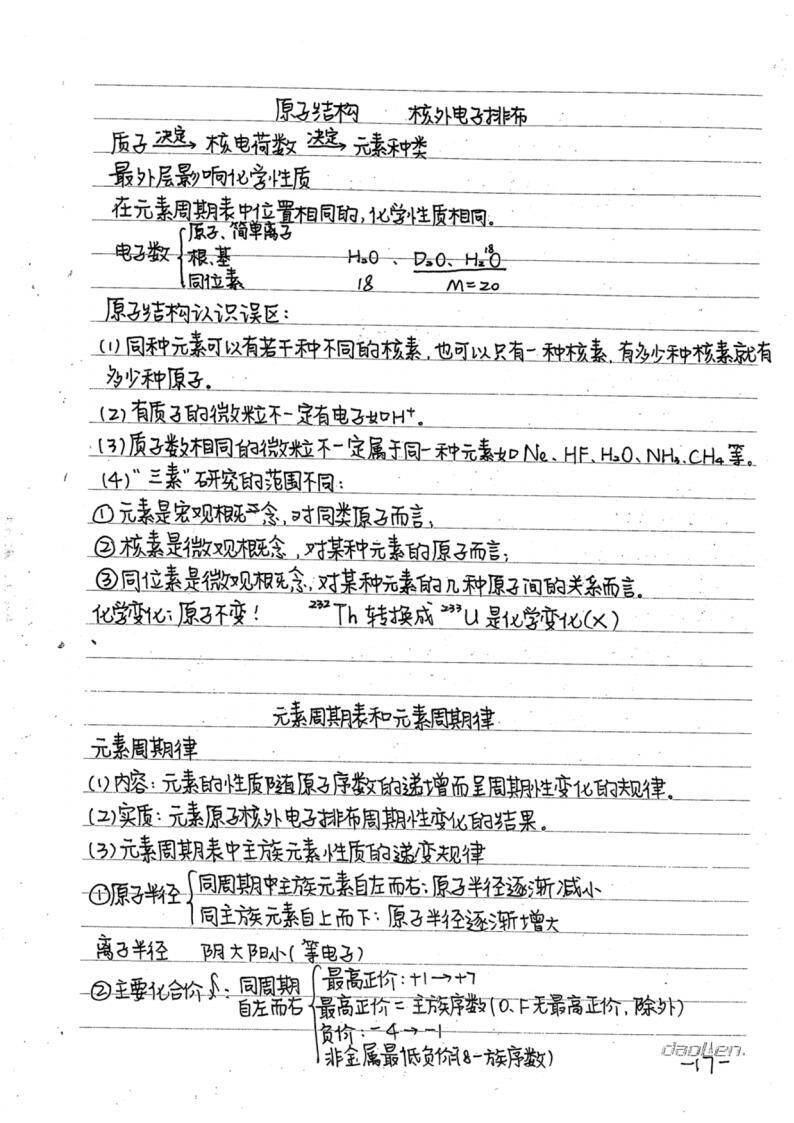 原子结构 核外电子排布
质子 决定→ 核电荷数 决定→ 元素种类
最外层影响化学性质
在元素周期表中位置相同的,化学性质相同。
电子数 { 原子、简单离子
根、基 H₂O 、 D₂O、H₂¹⁸O
同位素 18 M=20
原子结构认识误区:
(1)同种元素可以有若干种不同的核素,也可以只有一种核素,有多少种核素就有
多少种原子。
(2)有质子的微粒不一定有电子如H⁺。
(3)质子数相同的微粒不一定属于同一种元素如Ne、HF、H₂O、NH₃、CH₄等。
(4)“三素”研究的范围不同:
①元素是宏观概念,对同类原子而言;
②核素是微观概念,对某种元素的原子而言;
③同位素是微观概念,对某种元素的几种原子间的关系而言。
化学变化:原子不变! ²³²Th 转换成 ²³³U 是化学变化(×)
元素周期表和元素周期律
元素周期律
(1)内容:元素的性质随原子序数的递增而呈周期性变化的规律。
(2)实质:元素原子核外电子排布周期性变化的结果。
(3)元素周期表中主族元素性质的递变规律
①原子半径 { 同周期中主族元素自左而右:原子半径逐渐减小
同主族元素自上而下:原子半径逐渐增大
离子半径 阴大阳小(等电子)
②主要化合价 : 同周期自左而右 { 最高正价:+1→+7
最高正价=主族序数(O、F无最高正价,除外)
负价:-4→-1
非金属最低负价(8-族序数)
daollen.
-17-